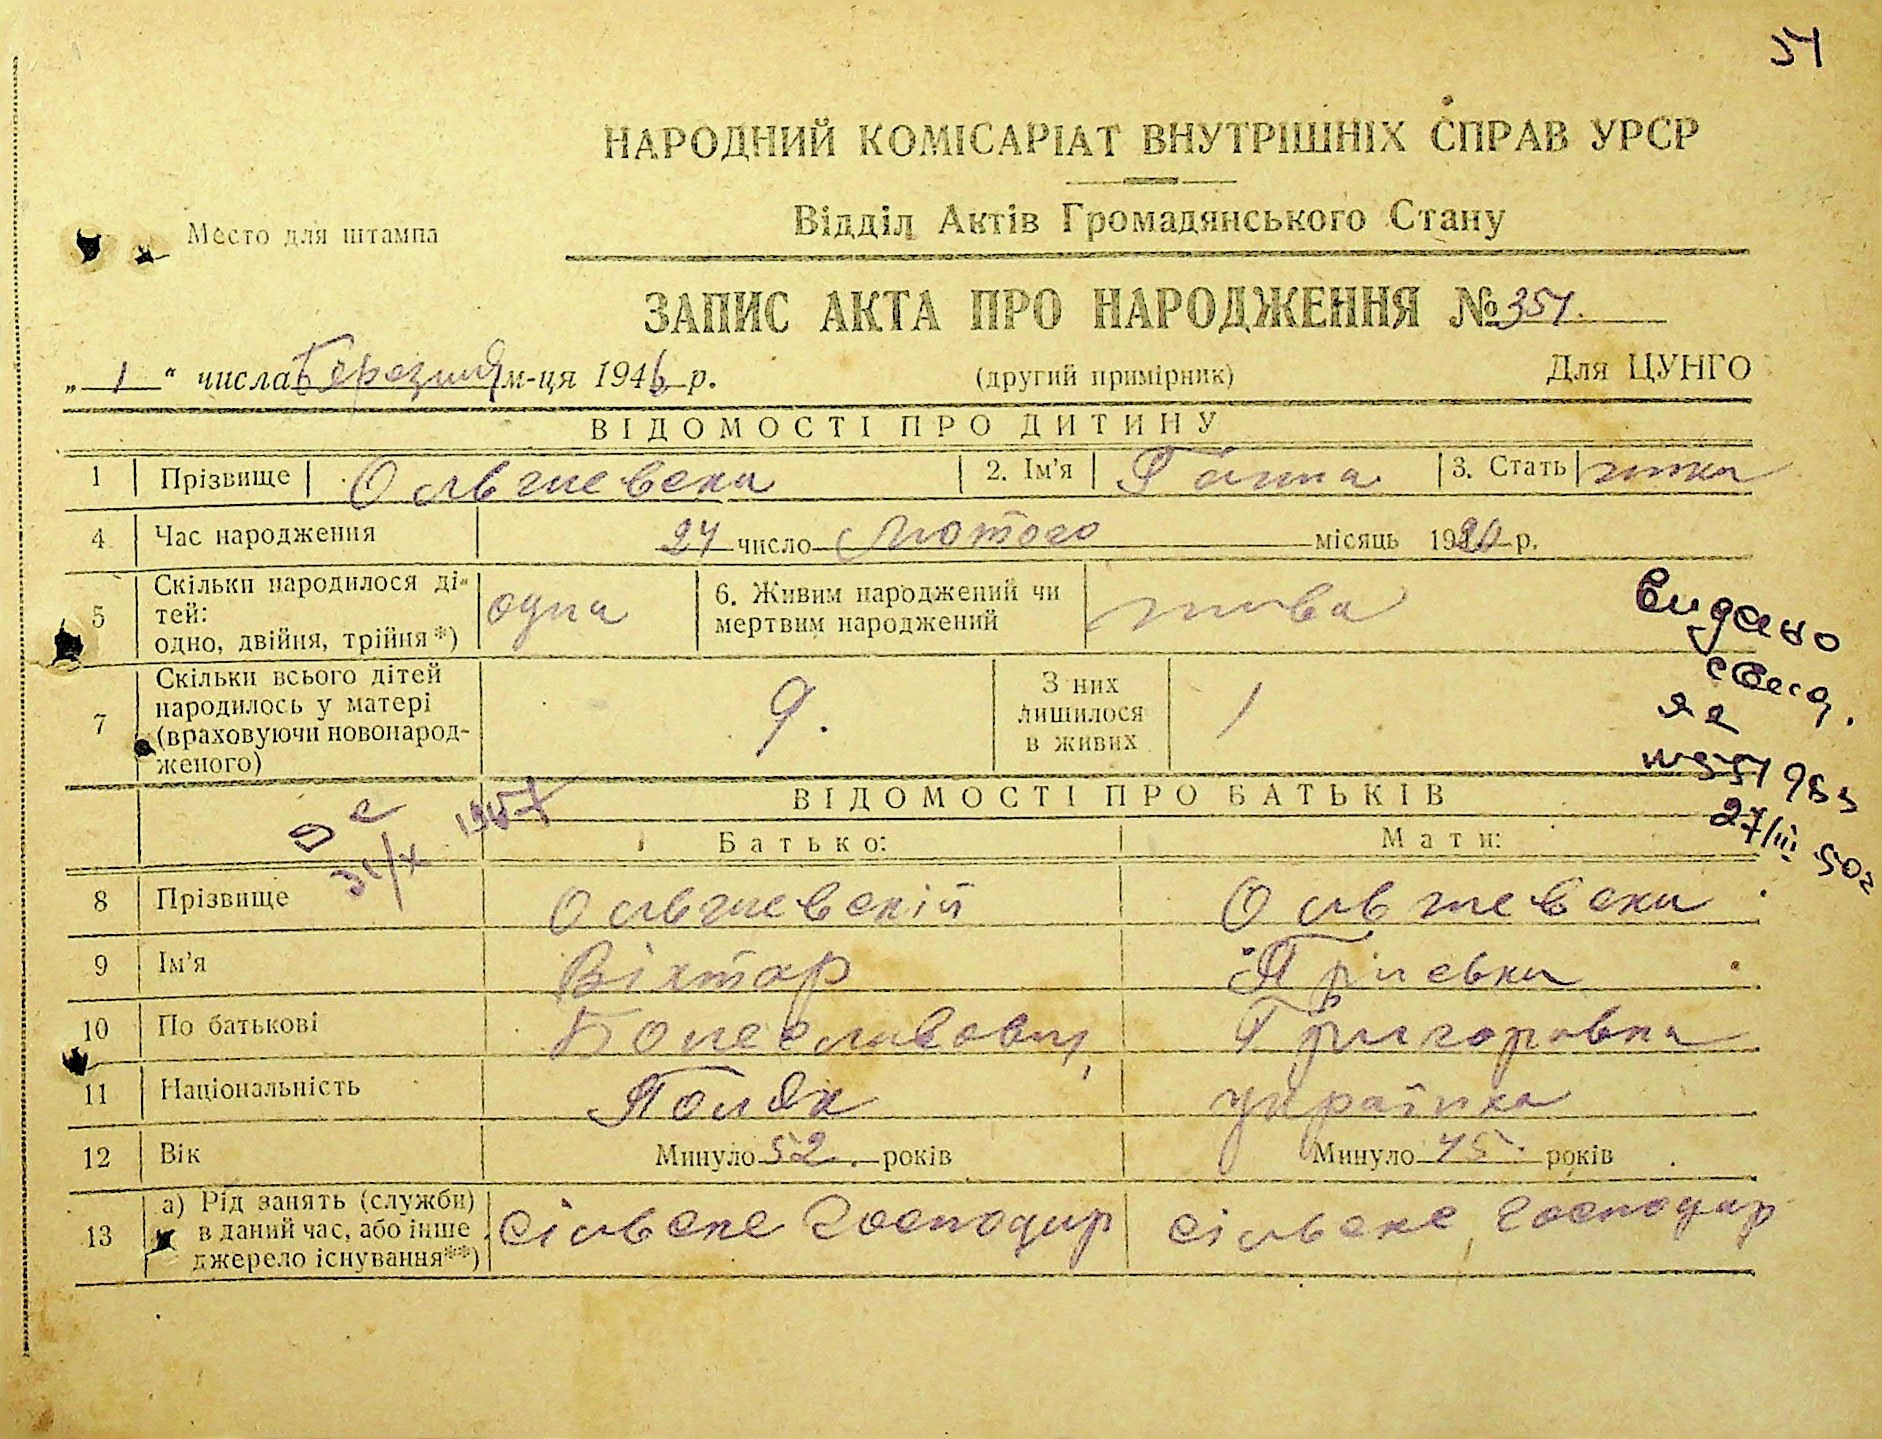 54
НАРОДНИЙ КОМІСАРІАТ ВНУТРІШНІХ СПРАВ УРСР
Відділ Актів Громадянського Стану
Место для штампа
ЗАПИС АКТА ПРО НАРОДЖЕННЯ № 351.
„ 1 “ числа Березня м-ця 1946 р. (другий примірник) Для ЦУНГО
ВІДОМОСТІ ПРО ДИТИНУ
1 Прізвище Ольжевска 2. Ім'я Ганна 3. Стать жінка
4 Час народження 24 число Лютого місяць 1920 р.
5 Скільки народилося ді-
тей:
одно, двійня, трійня*) одна 6. Живим народжений чи
мертвим народжений жива
Видано
свид.
на
7 Скільки всього дітей
народилось у матері
(враховуючи новонарод-
женого) 9. З них
лишилося
в живих 1
27/III 50г
31/X 1947
ВІДОМОСТІ ПРО БАТЬКІВ
Батько: Мати:
8 Прізвище Ольжевский Ольжевска
9 Ім'я Віктор
10 По батькові Болеславович Григоровна
11 Національність Поляк українка
12 Вік Минуло 52. років Минуло 45. років
13 а) Рід занять (служби)
в даний час, або інше
джерело існування**) сільске господар сільске господар